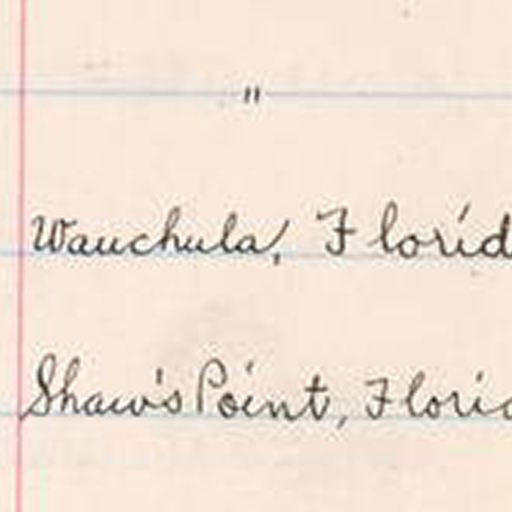 "
Wauchula, Florid
Shaw's Point, Florid